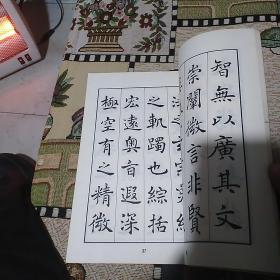 智無以廣其文
崇闡微言非賢
之軌躅也綜括
宏遠奧旨遐深
極空有之精微
37